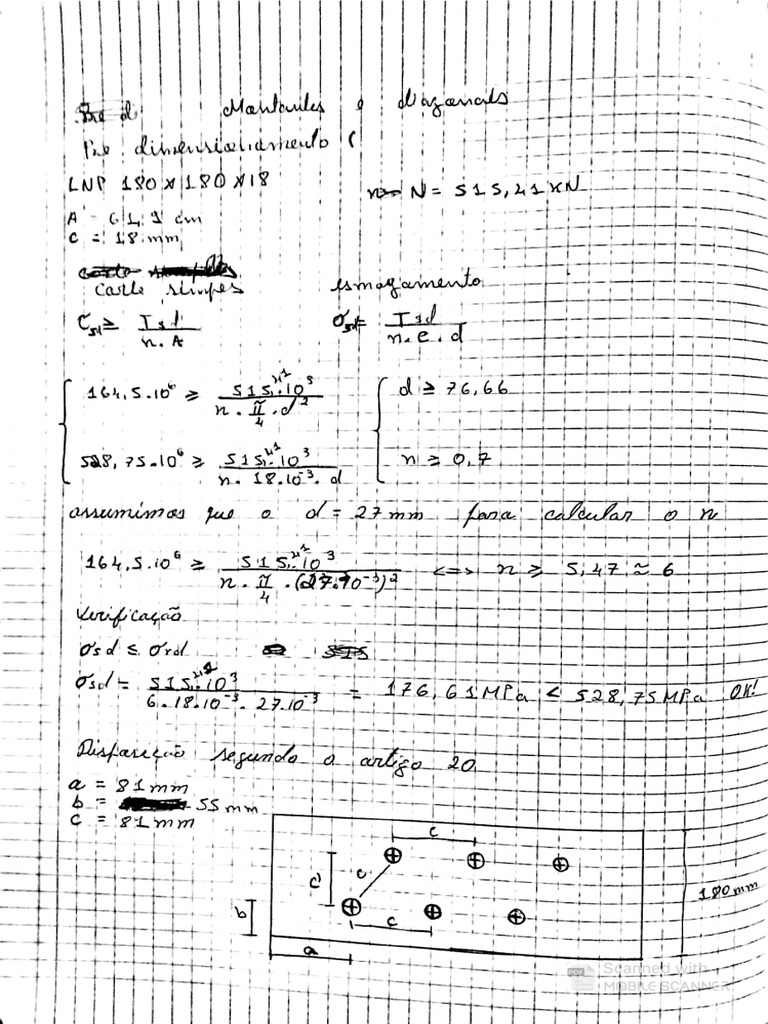 Montantes e diagonais
Pre dimensionamento (
LNP 180 x 180 x 18
N = 515,41 KN
A = 61,9 cm
e = 18 mm
corte simpes
esmagamento
τsd ≥ Tsd / n . A
σsd = Tsd / n . e . d
164,5.10⁶ ≥ 515,41.10³ / n . π/4 . d²
d ≥ 76,66
528,75.10⁶ ≥ 515,41.10³ / n . 18.10⁻³ . d
n ≥ 0,7
assumimos que o d = 27 mm para calcular o n
164,5.10⁶ ≥ 515,41.10³ / n . π/4 . (27.10⁻³)² <=> n ≥ 5,47 ≈ 6
Verificação
σsd ≤ σrd
σsd = 515,41.10³ / 6.18.10⁻³.27.10⁻³ = 176,61 MPa < 528,75 MPa OK!
Disposição segundo o artigo 20
a = 81 mm
b = 55 mm
c = 81 mm
c
c
c'
b
c
a
180 mm
PDF Scanned with
MOBILE SCANNER